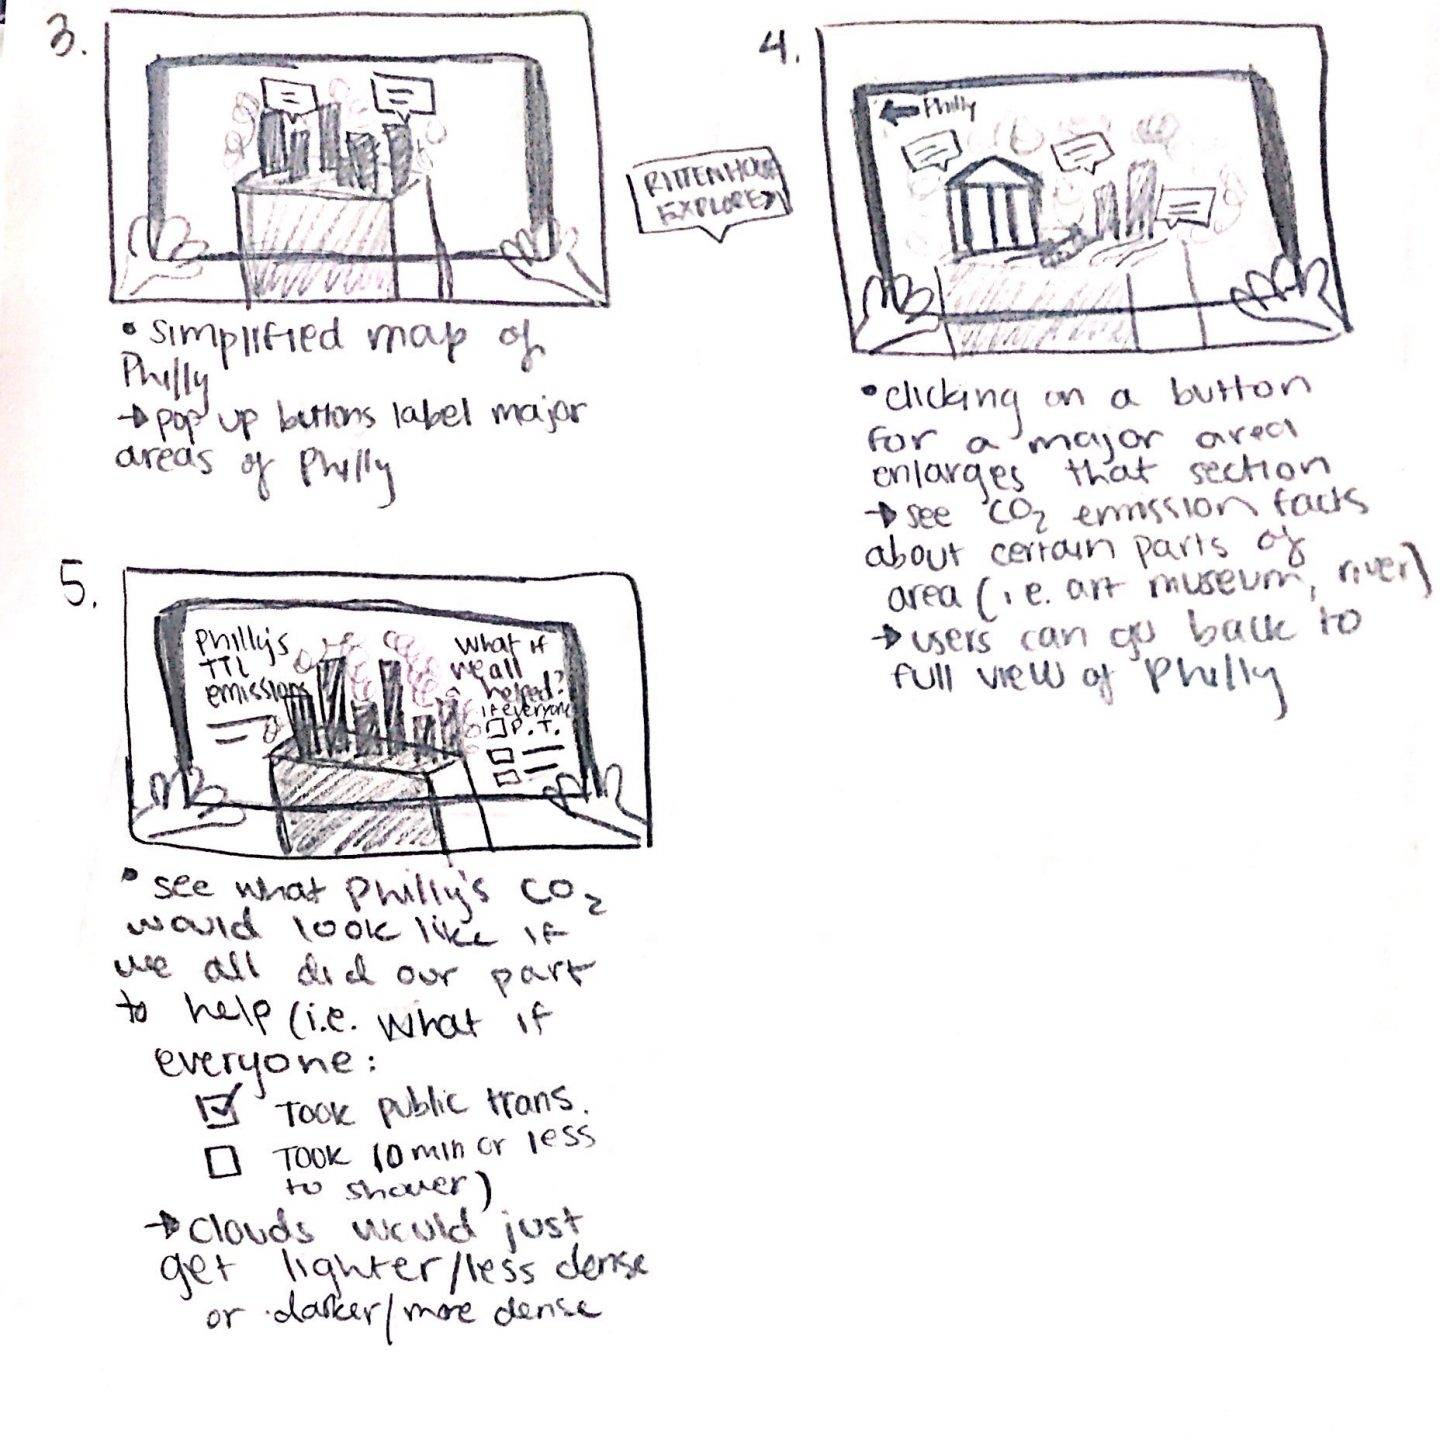 3.
• simplified map of
Philly
→ pop up buttons label major
areas of Philly
RITTENHOUSE
EXPLORE >
4.
← Philly
• clicking on a button
for a major area
enlarges that section
→ see CO₂ emission facts
about certain parts of
area (i.e. art museum, river)
→ users can go back to
full view of Philly
5.
Philly's
TTL
emissions
What if
we all
helped?
if everyone
☐ P.T.
• see what Philly's CO₂
would look like if
we all did our part
to help (i.e. what if
everyone:
☑ Took public trans.
☐ Took 10 min or less
to shower)
→ clouds would just
get lighter/less dense
or darker/more dense